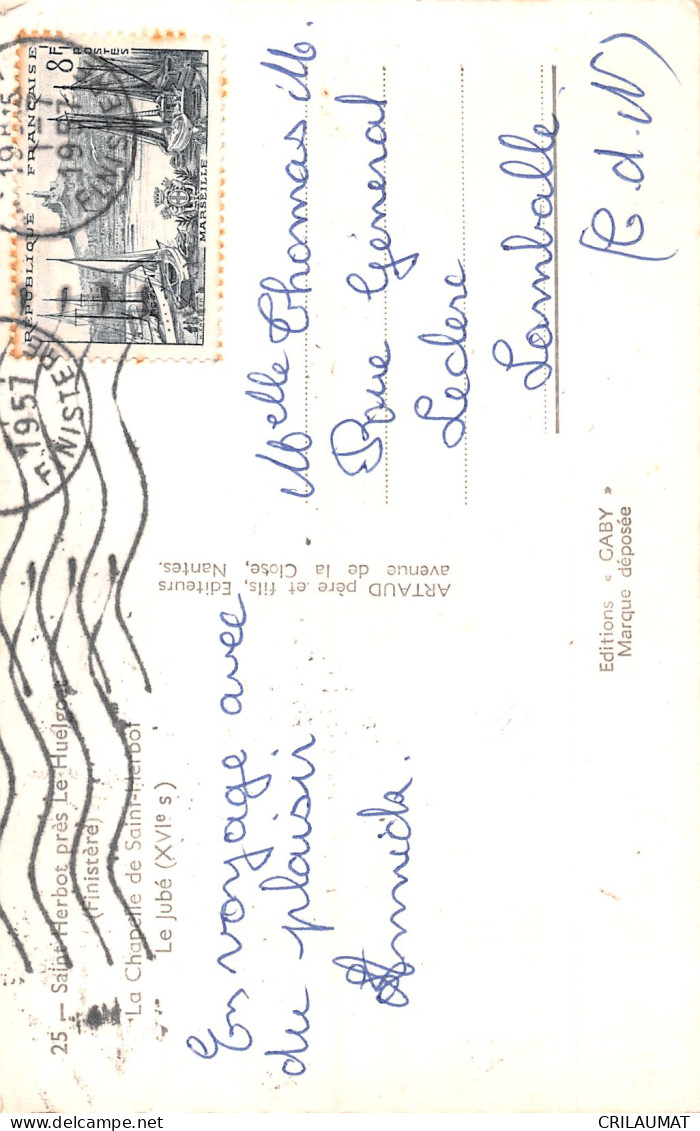 25 — Saint-Herbot près Le Huelgoat
(Finistère)
La Chapelle de Saint-Herbot
Le Jubé (XVIe s)
En voyage avec
du plaisir
Annick.
ARTAUD père et fils, Editeurs
avenue de la Close, Nantes.
Editions « GABY »
Marque déposée
REPUBLIQUE FRANÇAISE
8F
POSTES
MARSEILLE
1957
FINISTERE
1957
FINISTERE
Melle Thomas M.
Rue Général
Leclerc
Lamballe
(C.d.N)
CRILAUMAT